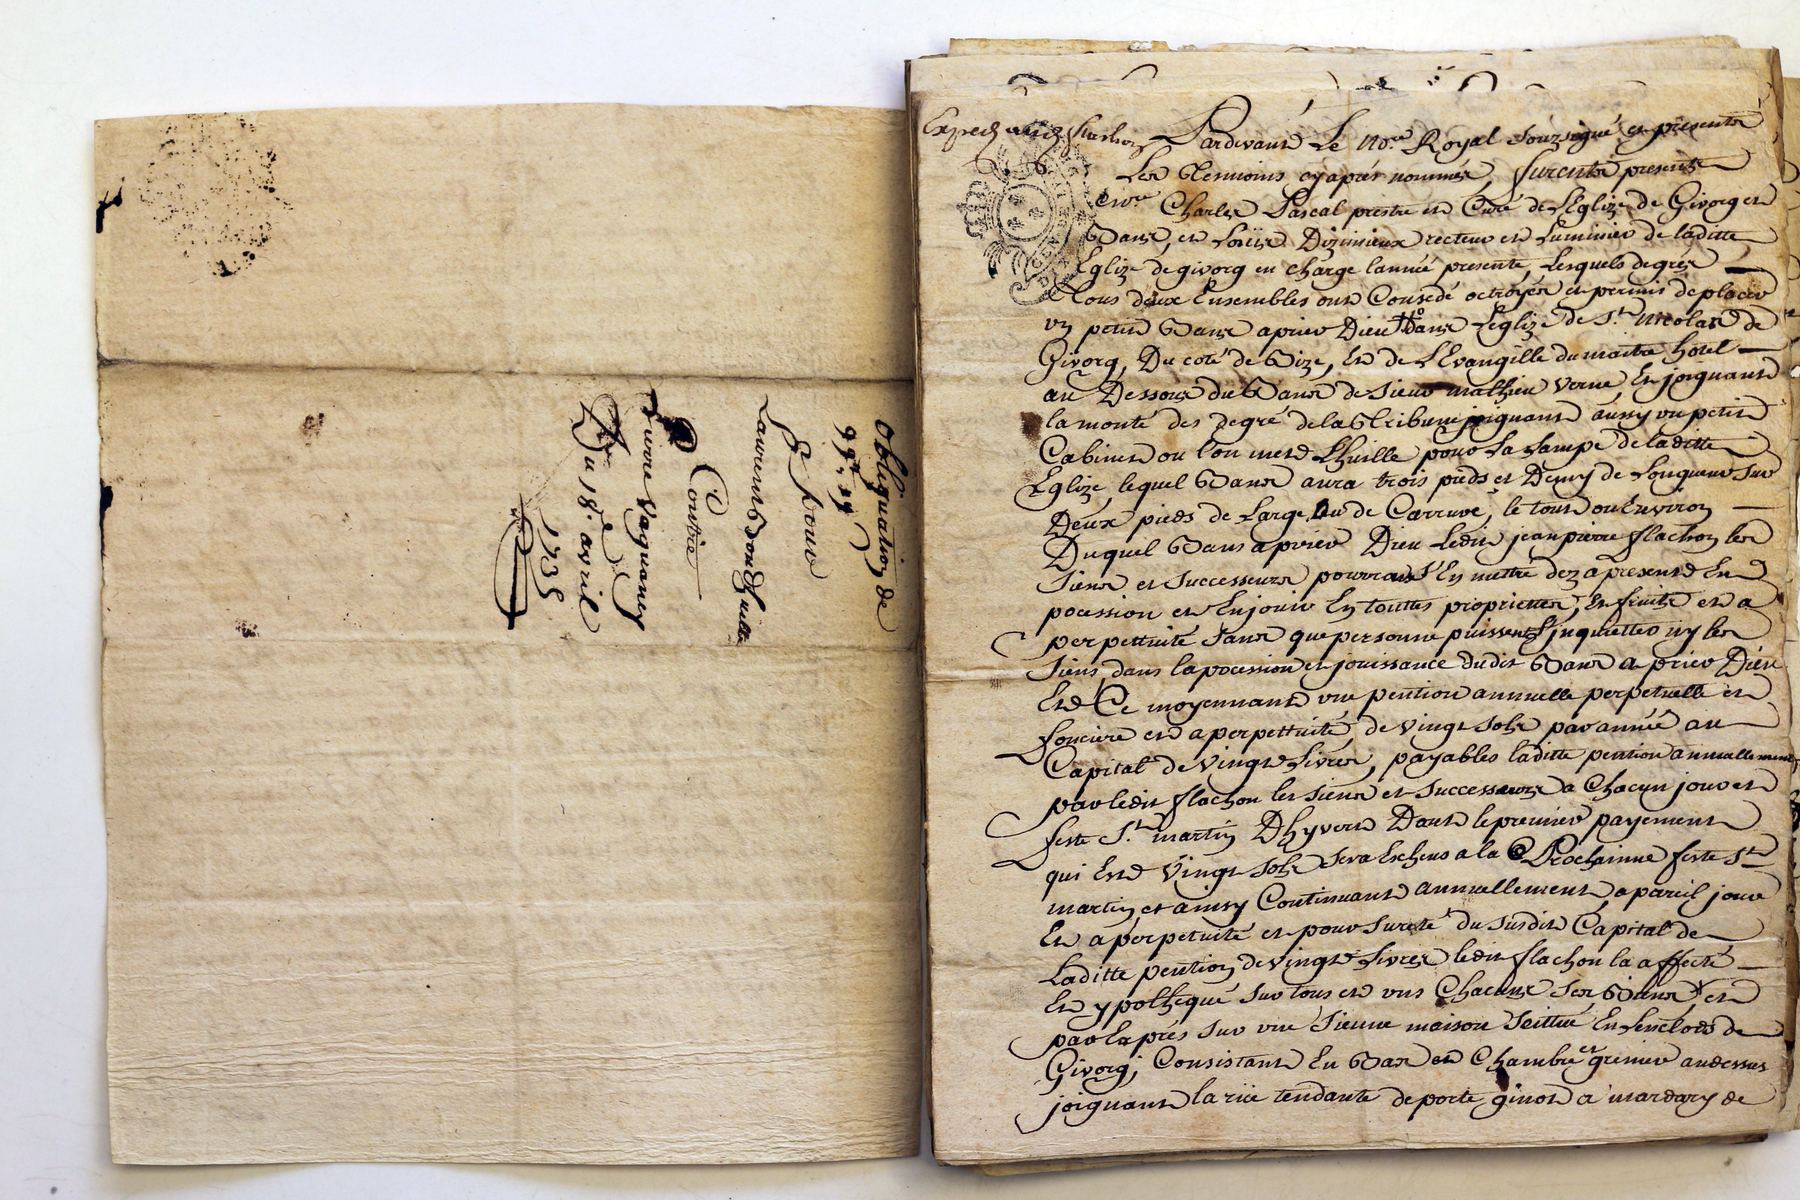 Obligation de
99ᵗ 15ˢ
Pour
Laurent
Contre
Pierre Vaganey
Du 18ᵉ avril
1735
Expedié
Pardevant Le No.re Royal Souzsigné et presents
Les Tesmoins cy aprés nommés, furents presents
Charles Pascal prestre et Curé de L'Eglize de Givorg et
Bans, et Loüis Dizimieux recteur et Luminier de laditte
Eglize de givorg en charge l'année presente, Lesquels de grés
Tous deux Ensembles ont Consedé octroyés et permis de placer
un petit Banc a prier Dieu dans L'eglize de St. Nicolas de
Givorg, Du coté de Bize, et de L'Evangille du maitre hotel
au Dessous du Banc de Sieur mathieu Verne Et joignant
la monté des degré de la Tribune joignant aussy un petit
Cabinet ou l'on met L'huille pour La Lampe de laditte
Eglize, lequel Banc aura trois pieds et Demy de Longueur sur
Deux pieds de Large, de Carrure, le tout ou Environ
Duquel Banc a prier Dieu Ledit jean pierre flachon les
Siens et Successeurs pourront s'En mettre dez a present En
pocession et En jouir En touttes proprietter, En fruits et a
perpettuité sans que personne puissent L'inquietter ny les
Siens dans la pocession et jouissance dudit Banc a prier Dieu
Et Ce moyennant une pention annuelle perpetuelle et
fonciere et a perpettuité de Vingt Sols par année au
Capital de Vingt Livres, payables laditte pention annuallement
par ledit flachon les siens et Successeurs a Chacun jour et
feste St. martin D'hyvert Dont le premier payement
qui Est Vingt Sols sera Escheus a la Prochainne feste St.
martin, et ainsy Continuant annuellement, a pareil jour
Et a perpetuité et pour Sureté du Susdit Capital de
Laditte pention de Vingt Livres ledit flachon la affecté
Et ypothequé sur tous et uns Chacuns ses Biens, et
par Exprés sur une Sienne maison Seittué En L'enclods de
Givorg, Consistant En Bas et Chambre et grenier au dessus
joignant la rüe tendante de porte ginot a mardary de